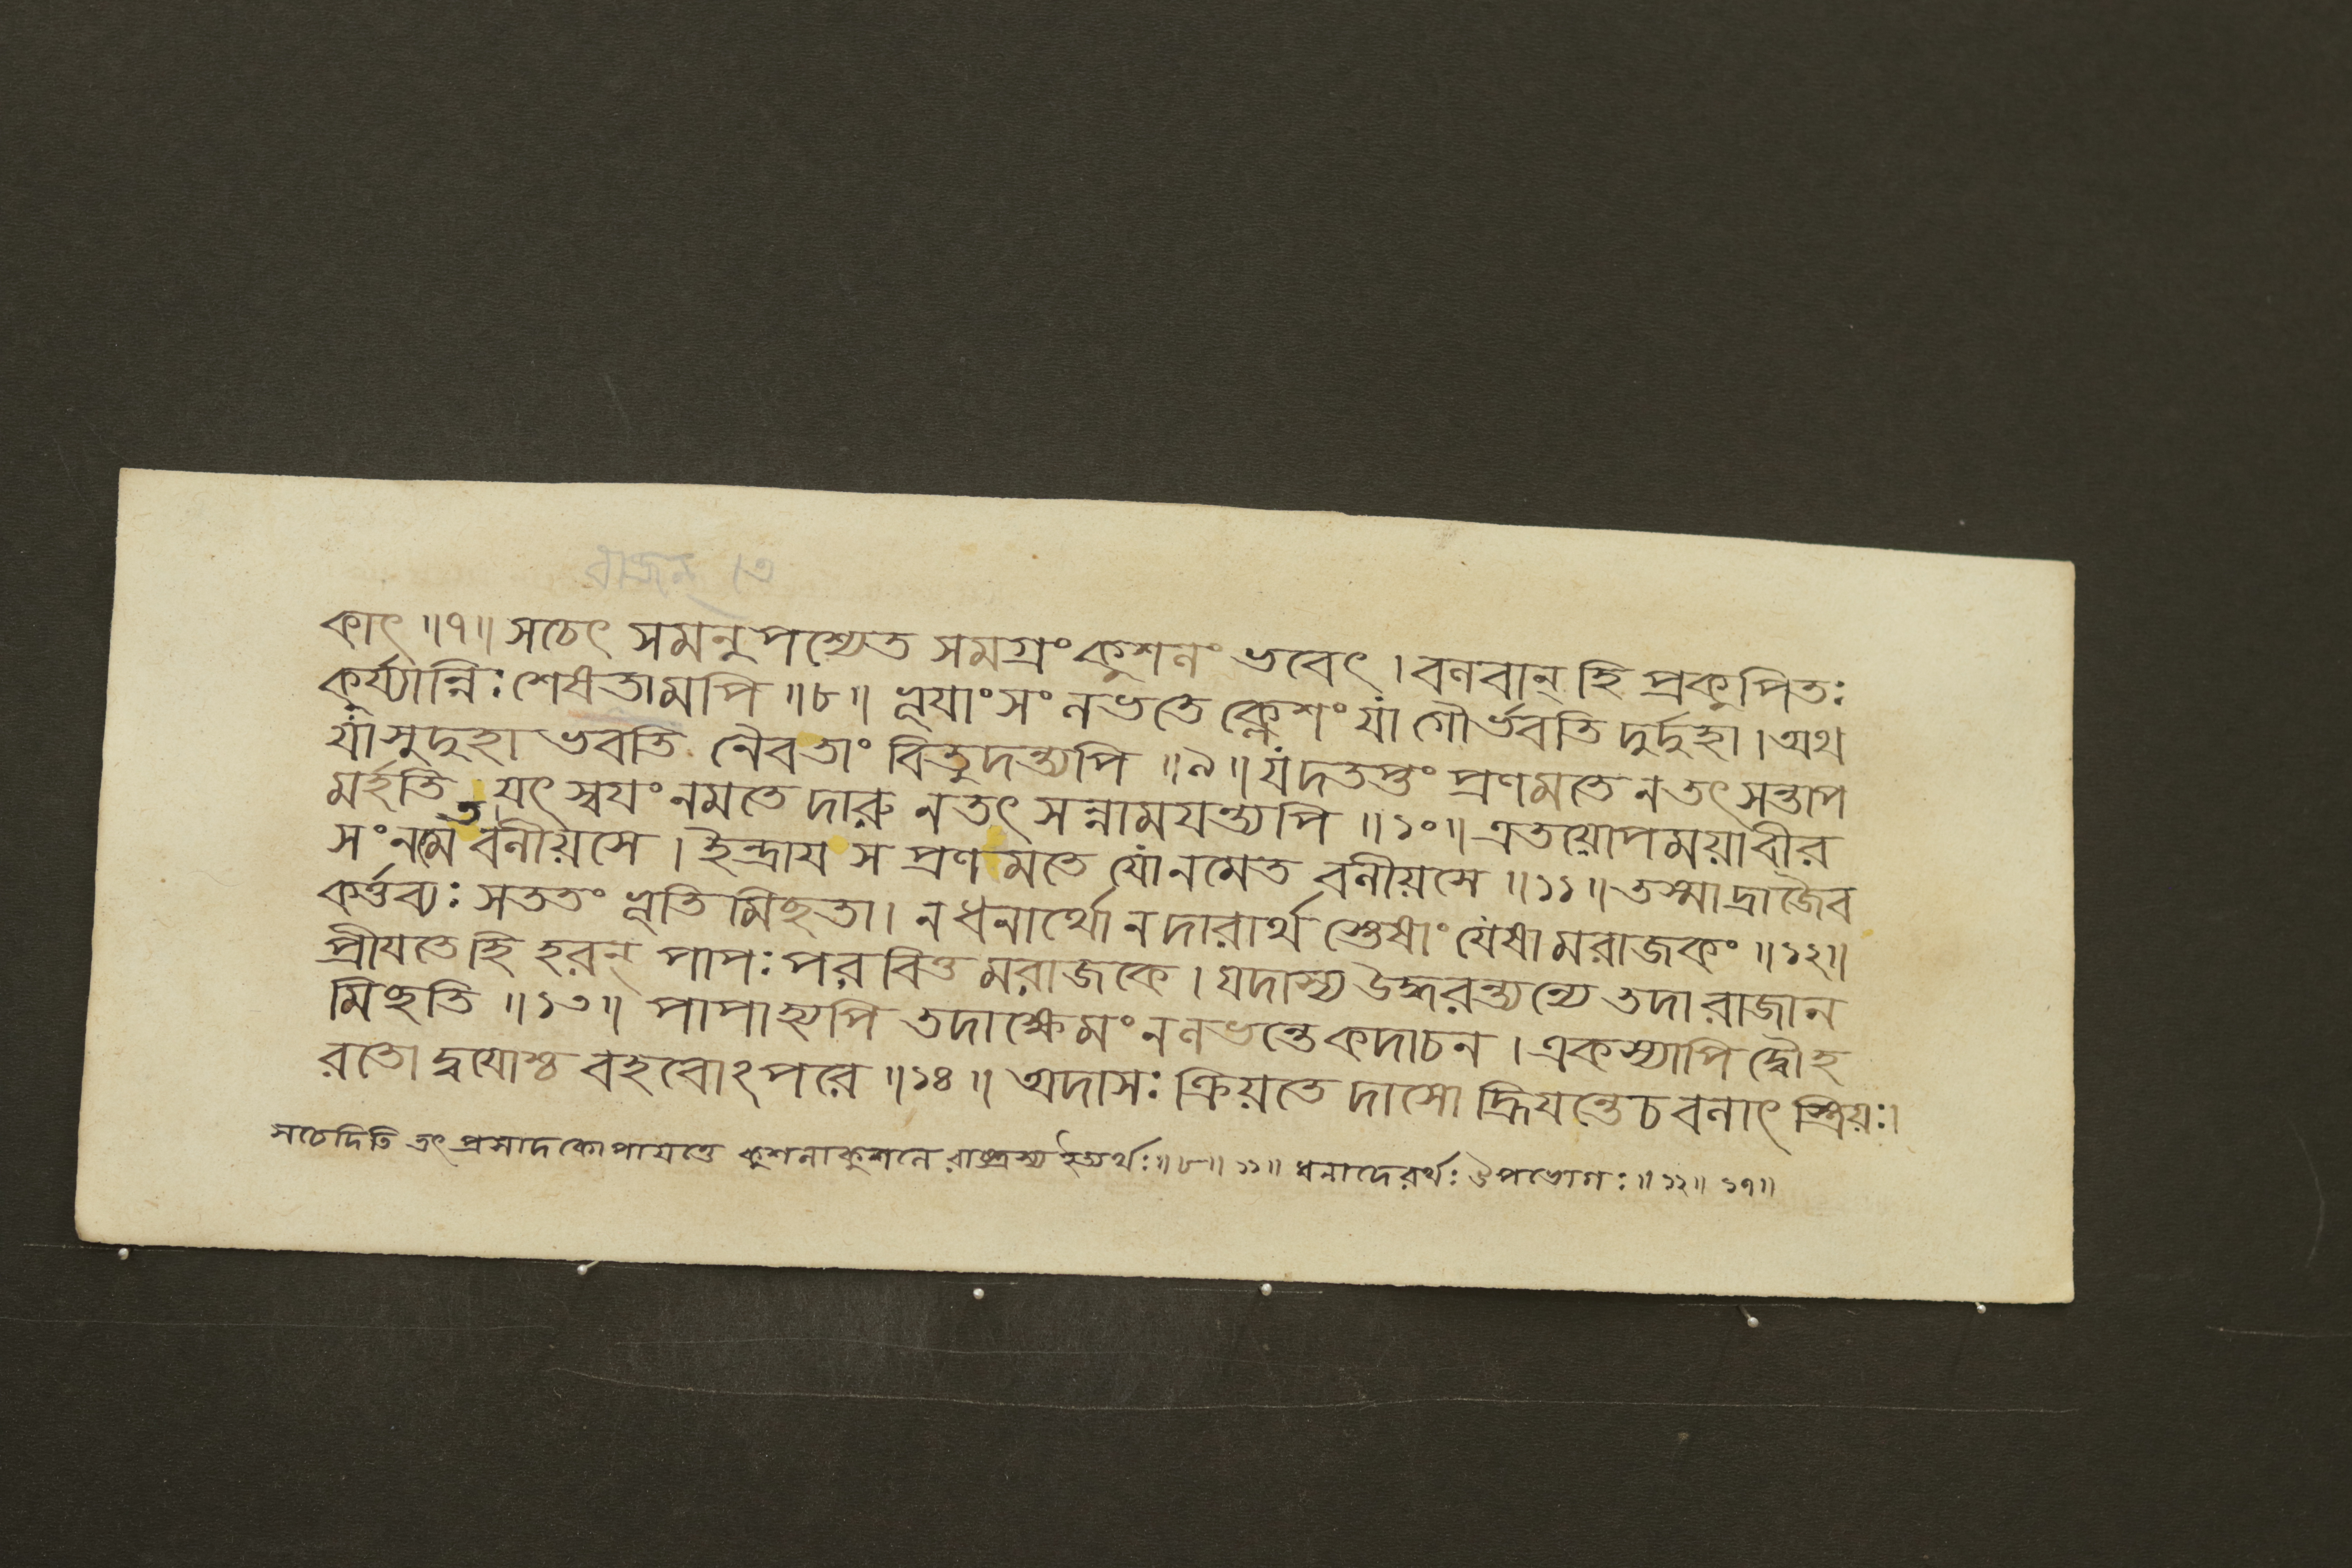 রাজন্ তে
কাৎ ॥৭॥ সচেৎ সমনুপশ্যেত সমগ্রং কুশলং ভবেৎ । বলবান্ হি প্রকুপিতঃ
কুর্য্যান্নিঃশেষতামপি ॥৮॥ ভূয়াংসং লভতে ক্লেশং যা গৌর্ভবতি দুর্দুহা । অথ
যা সুদুহা ভবতি নৈবতাং বিতুদন্ত্যপি ॥৯॥ যদতপ্তং প্রণমতে নতৎ সন্তাপ
মর্হতি যৎ স্বয়ং নমতে দারু নতৎ সন্নাময়ন্ত্যপি ॥১০॥ এতয়োপময়াবীর
সংনমেত বলীয়সে । ইন্দ্রায় স প্রণমতে যো নমেত বলীয়সে ॥১১॥ তস্মাদ্রাজৈব
কর্ত্তব্যঃ সততং ভূতি মিচ্ছতা । ন ধনার্থো ন দারার্থ স্তেষাং যেষা মরাজকং ॥১২॥
প্রীয়তে হি হরন্ পাপঃ পর বিত্ত মরাজকে । যদাস্য উদ্ধরন্ত্যন্যে তদা রাজান
মিচ্ছতি ॥১৩॥ পাপাহ্যপি তদা ক্ষেমং নলভন্তে কদাচন । একস্যাপি দ্বৌ হ
রতো দ্বয়োশ্চ বহবোঽপরে ॥১৪॥ অদাসঃ ক্রিয়তে দাসো হ্রিয়ন্তে চ বলাৎ স্ত্রিয়ঃ ।
সচেদিতি তৎ প্রসাদকোপায়ত্তে কুশলাকুশলে রাষ্ট্রস্য ইত্যর্থঃ ॥৮॥ ১১॥ ধনাদেরর্থঃ উপভোগঃ ॥১২॥ ১৭॥